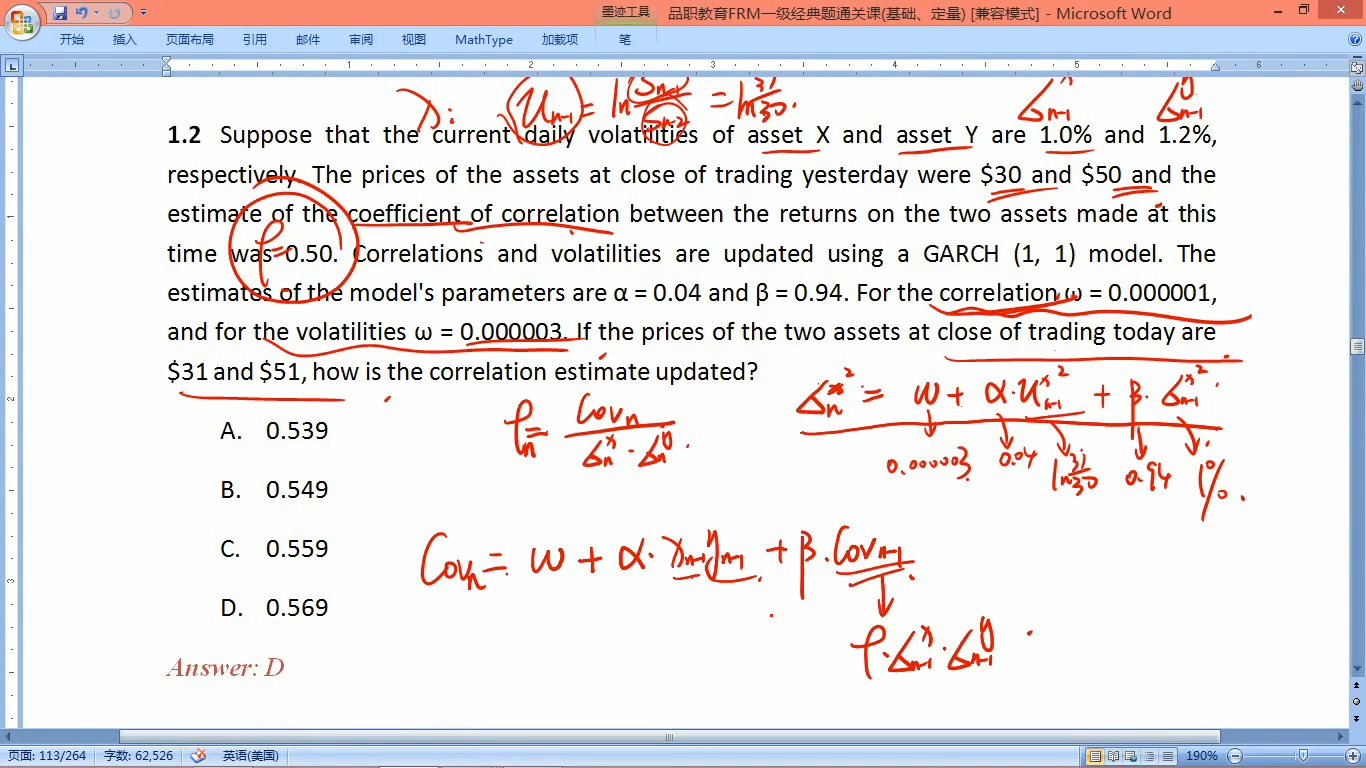 墨迹工具
品职教育FRM一级经典题通关课(基础、定量) [兼容模式] - Microsoft Word
开始 插入 页面布局 引用 邮件 审阅 视图 MathType 加载项 笔
1 2 3 4 5 6
λ: u n-1 = ln S n-1 / S n-2 = ln 31/30. σ n-1 x σ n-1 y
1.2 Suppose that the current daily volatilities of asset X and asset Y are 1.0% and 1.2%,
respectively. The prices of the assets at close of trading yesterday were $30 and $50 and the
estimate of the coefficient of correlation between the returns on the two assets made at this
time was 0.50. Correlations and volatilities are updated using a GARCH (1, 1) model. The
ρ=
estimates of the model's parameters are α = 0.04 and β = 0.94. For the correlation ω = 0.000001,
and for the volatilities ω = 0.000003. If the prices of the two assets at close of trading today are
$31 and $51, how is the correlation estimate updated?
σn x² = ω + α·u n-1 x² + β·σ n-1 x²
0.000003 0.04 ln 31/30 0.94 1%.
ρn = Cov n / σn x · σn y
A. 0.539
B. 0.549
C. 0.559
D. 0.569
Cov n = ω + α·x n-1 y n-1 + β·Cov n-1
ρ·σ n-1 x·σ n-1 y
Answer: D
页面: 113/264 字数: 62,526 英语(美国) 190%